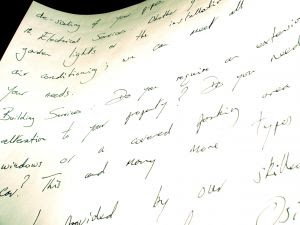 de-scaling of your pipes
or Electrical Services. Whether
garden lights or the installation
air conditioning; we can meet all
your needs.
Building Services: Do you require an extension
alteration to your property? Do you need
windows or a covered parking area
car? This and many more types
provided by our skilled